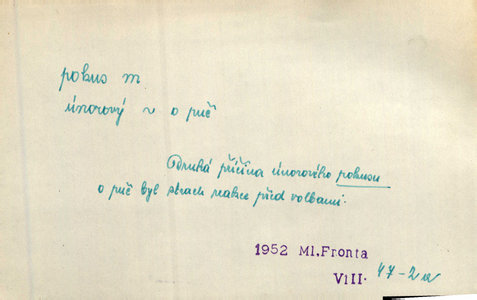 pokus m
únorový ~ o puč
Druhá příčina únorového pokusu
o puč byl strach reakce před volbami.
1952 Ml.Fronta
VIII. 47-2a